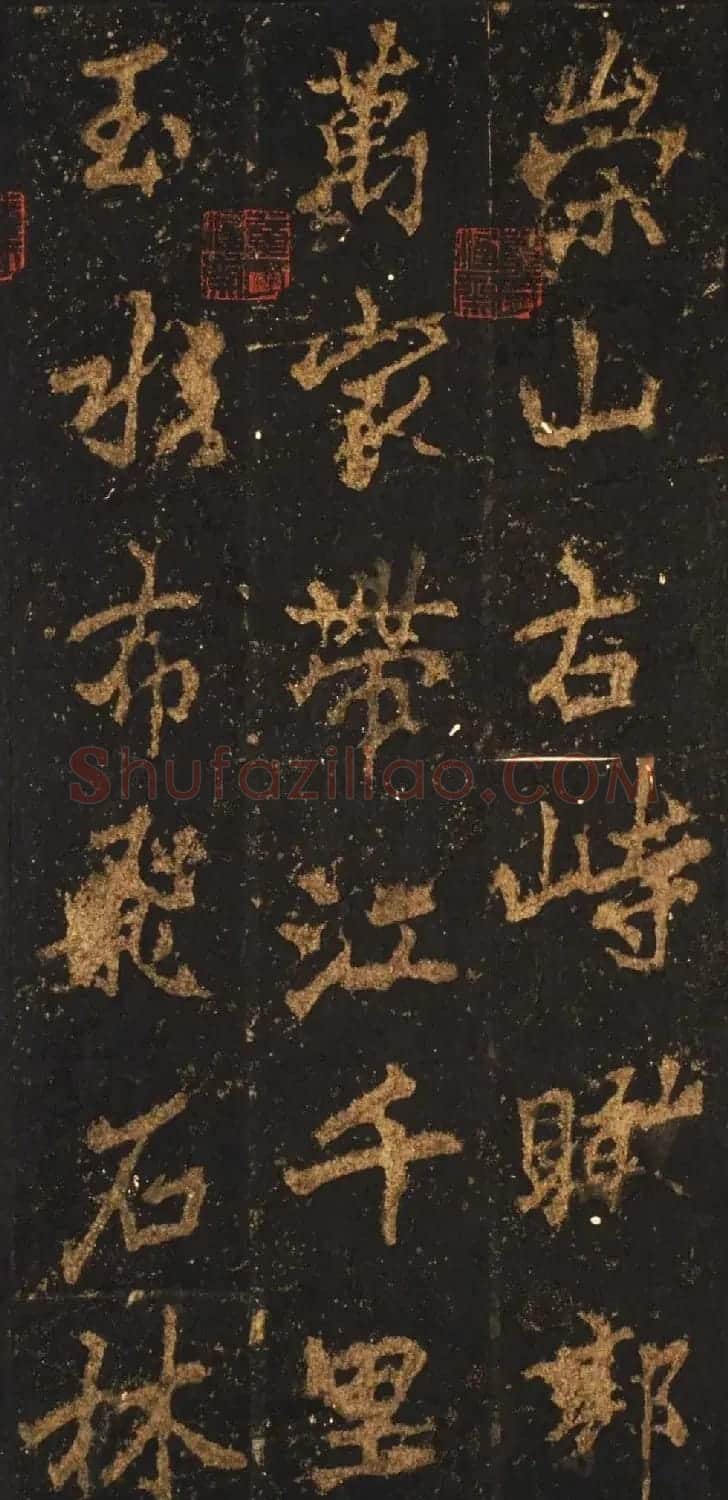 崇山右峙瞰郭
萬家帶江千里
玉水布飛石林
Shufaziliao.COM